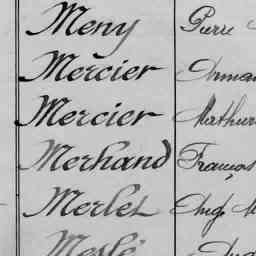 Meny Pierre
Mercier Arman
Mercier Mathur
Merhand Franços
Merlet Ang. M
Meslé